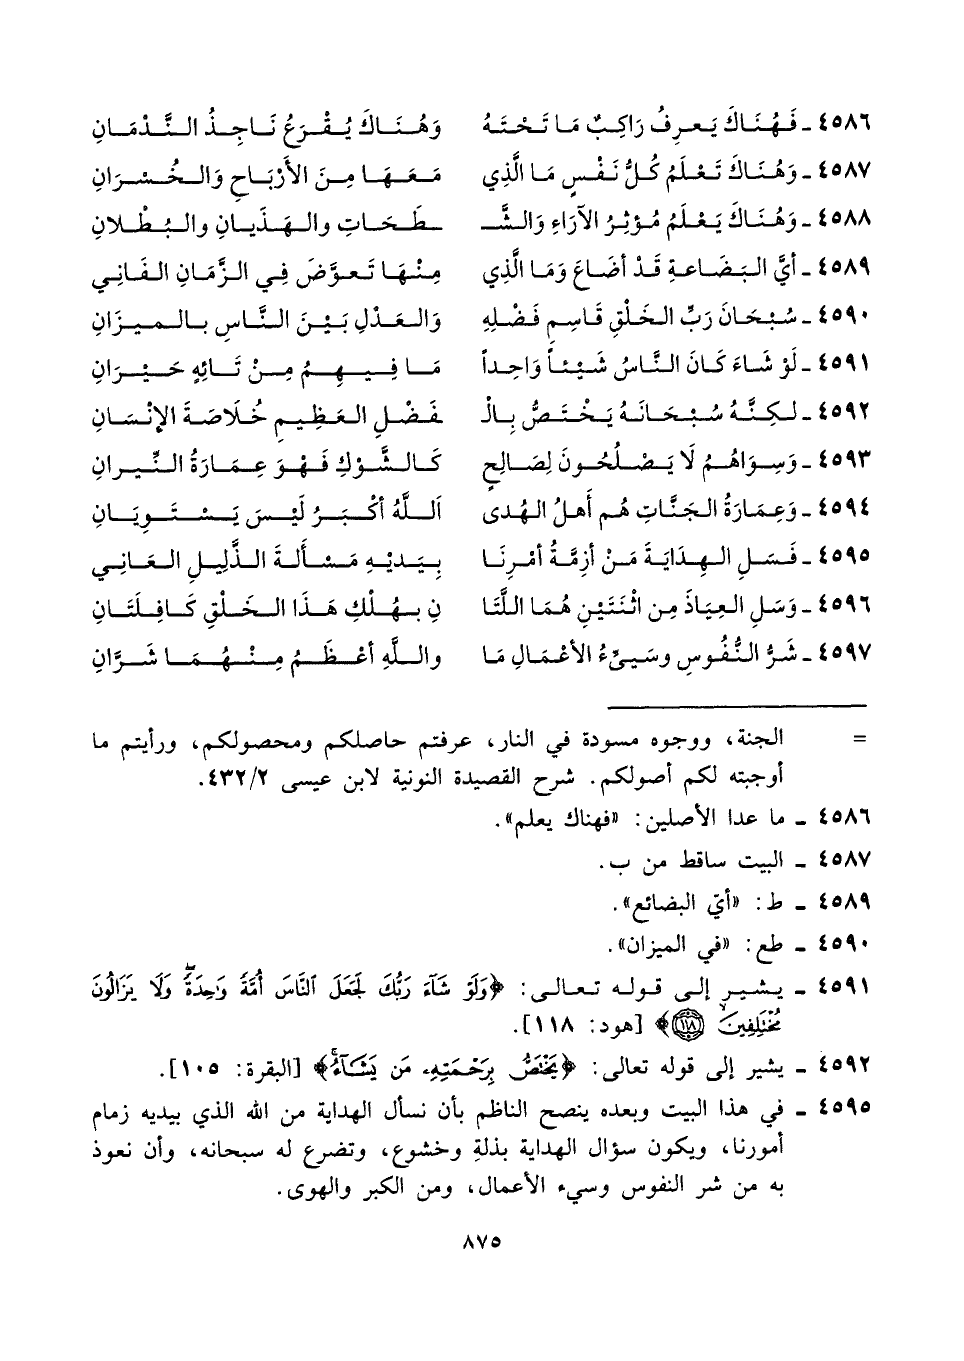 ٤٥٨٦ ـ فَهُنَاكَ يَعرِفُ رَاكِبٌ مَا تَحْتَهُ وَهُنَاكَ يُقْرَعُ نَاجِذُ النَّدْمَانِ
٤٥٨٧ ـ وَهُنَاكَ تَعْلَمُ كُلُّ نَفْسٍ مَا الَّذِي مَعَهَا مِنَ الأَرْبَاحِ وَالخُسْرَانِ
٤٥٨٨ ـ وَهُنَاكَ يَعْلَمُ مُؤثِرُ الآرَاءِ وَالشَّـ ـطَحَاتِ والهَذَيانِ والبُطْلانِ
٤٥٨٩ ـ أيَّ البَضَاعةِ قَدْ أضَاعَ وَمَا الَّذِي مِنْهَا تَعوَّضَ فِي الزَّمَانِ الفَانِي
٤٥٩٠ ـ سُبْحَانَ رَبِّ الخَلْقِ قَاسِمِ فَضْلِهِ وَالعَدْلِ بَيْنَ النَّاسِ بالمِيزَانِ
٤٥٩١ ـ لَوْ شَاءَ كَانَ النَّاسُ شَيْئاً وَاحِداً مَا فِيهِمُ مِنْ تَائِهٍ حَيْرَانِ
٤٥٩٢ ـ لكِنَّهُ سُبْحَانَهُ يَخْتَصُّ بِالْـ ـفَضْلِ العَظِيمِ خُلَاصَةَ الإنْسَانِ
٤٥٩٣ ـ وَسِوَاهُمُ لَا يَصْلُحُونَ لِصَالِحٍ كَالشَّوْكِ فَهْوَ عِمَارَةُ النِّيرانِ
٤٥٩٤ ـ وَعِمَارَةُ الجَنَّاتِ هُم أَهلُ الهُدى اَللَّهُ أكْبَرُ لَيْسَ يَسْتَوِيَانِ
٤٥٩٥ ـ فَسَلِ الهِدَايَةَ مَنْ أزِمَّةُ أمْرِنَا بِيَديْهِ مَسْأَلَةَ الذَّلِيلِ العَانِي
٤٥٩٦ ـ وَسَلِ العِيَاذَ مِن اثْنَتَيْنِ هُمَا اللَّتَا نِ بِهُلْكِ هَذَا الخَلْقِ كَافِلَتَانِ
٤٥٩٧ ـ شَرُّ النُّفُوسِ وسَيىءُ الأعْمَالِ مَا واللَّهِ أعْظَمُ مِنْهُمَا شَرَّانِ
= الجنة، ووجوه مسودة في النار، عرفتم حاصلكم ومحصولكم، ورأيتم ما
أوجبته لكم أصولكم. شرح القصيدة النونية لابن عيسى ٤٣٢/٢.
٤٥٨٦ ـ ما عدا الأصلين: «فهناك يعلم».
٤٥٨٧ ـ البيت ساقط من ب.
٤٥٨٩ ـ ط: «أيّ البضائع».
٤٥٩٠ ـ طع: «في الميزان».
٤٥٩١ ـ يشير إلى قوله تعالى: ﴿وَلَوْ شَآءَ رَبُّكَ لَجَعَلَ ٱلنَّاسَ أُمَّةً وَٰحِدَةً ۖ وَلَا يَزَالُونَ
مُخْتَلِفِينَ ۙ ١١٨﴾ [هود: ١١٨].
٤٥٩٢ ـ يشير إلى قوله تعالى: ﴿يَخْتَصُّ بِرَحْمَتِهِۦ مَن يَشَآءُ ۚ﴾ [البقرة: ١٠٥].
٤٥٩٥ ـ في هذا البيت وبعده ينصح الناظم بأن نسأل الهداية من الله الذي بيديه زمام
أمورنا، ويكون سؤال الهداية بذلةٍ وخشوع، وتضرع له سبحانه، وأن نعوذ
به من شر النفوس وسيء الأعمال، ومن الكبر والهوى.
٨٧٥